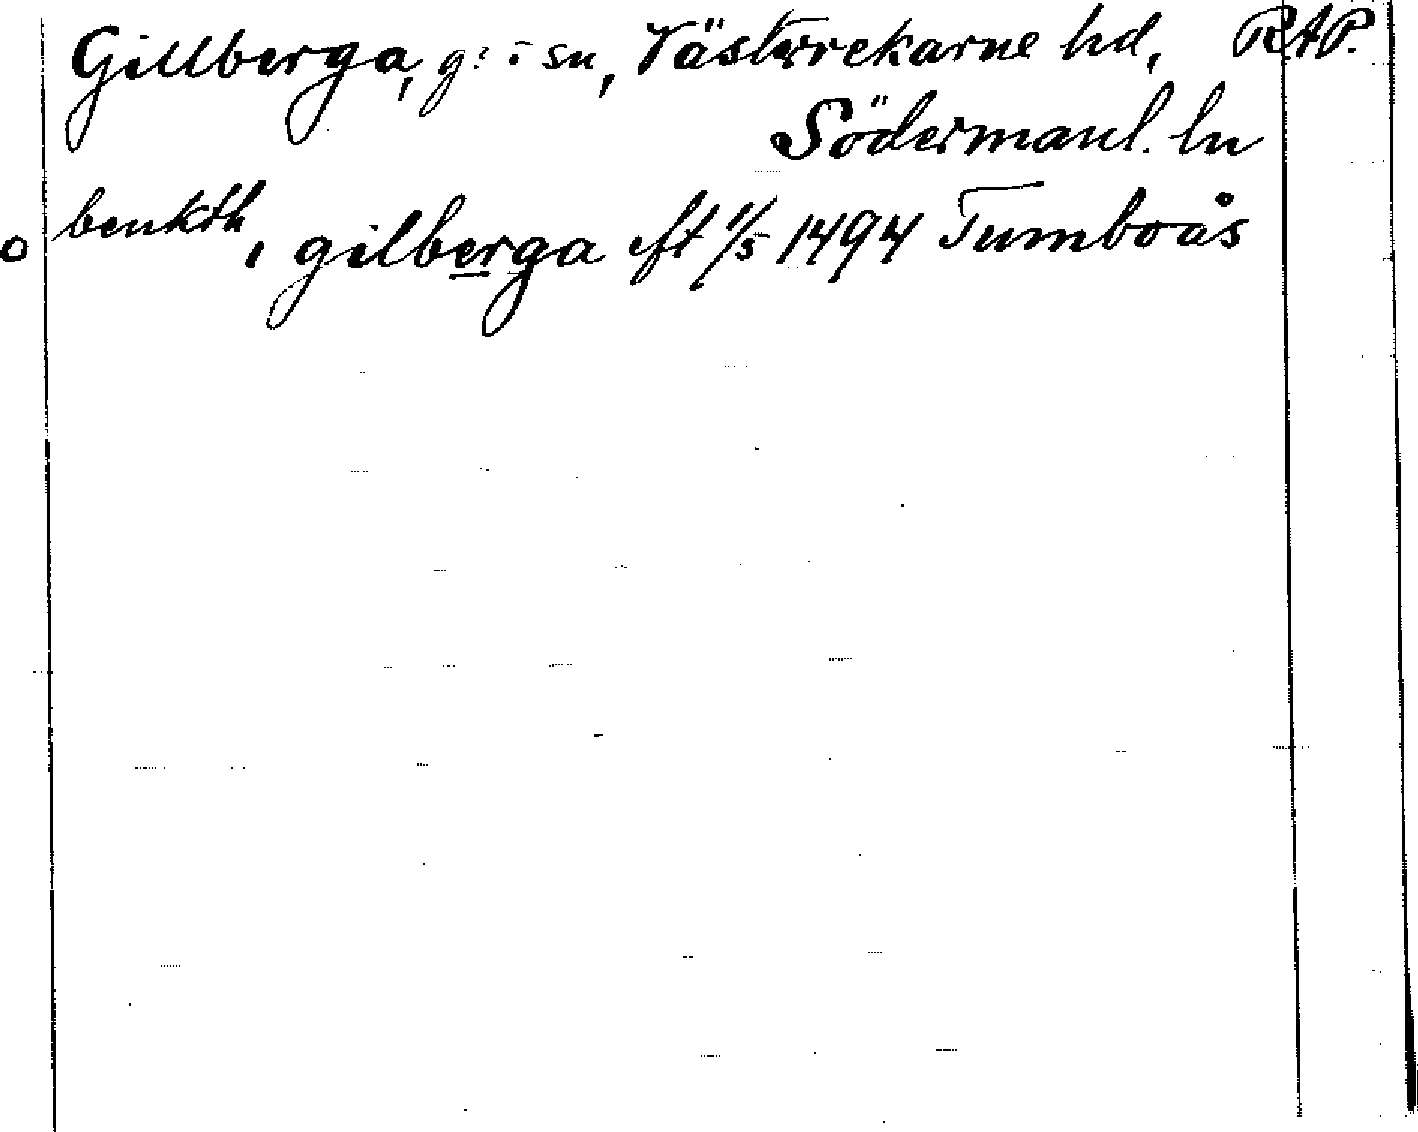 Gillberga, g: i sn, Västerrekarne hd, RAP.
Södermanl. ln
o benkth i gilberga eft 1/5 1494 Tumboås